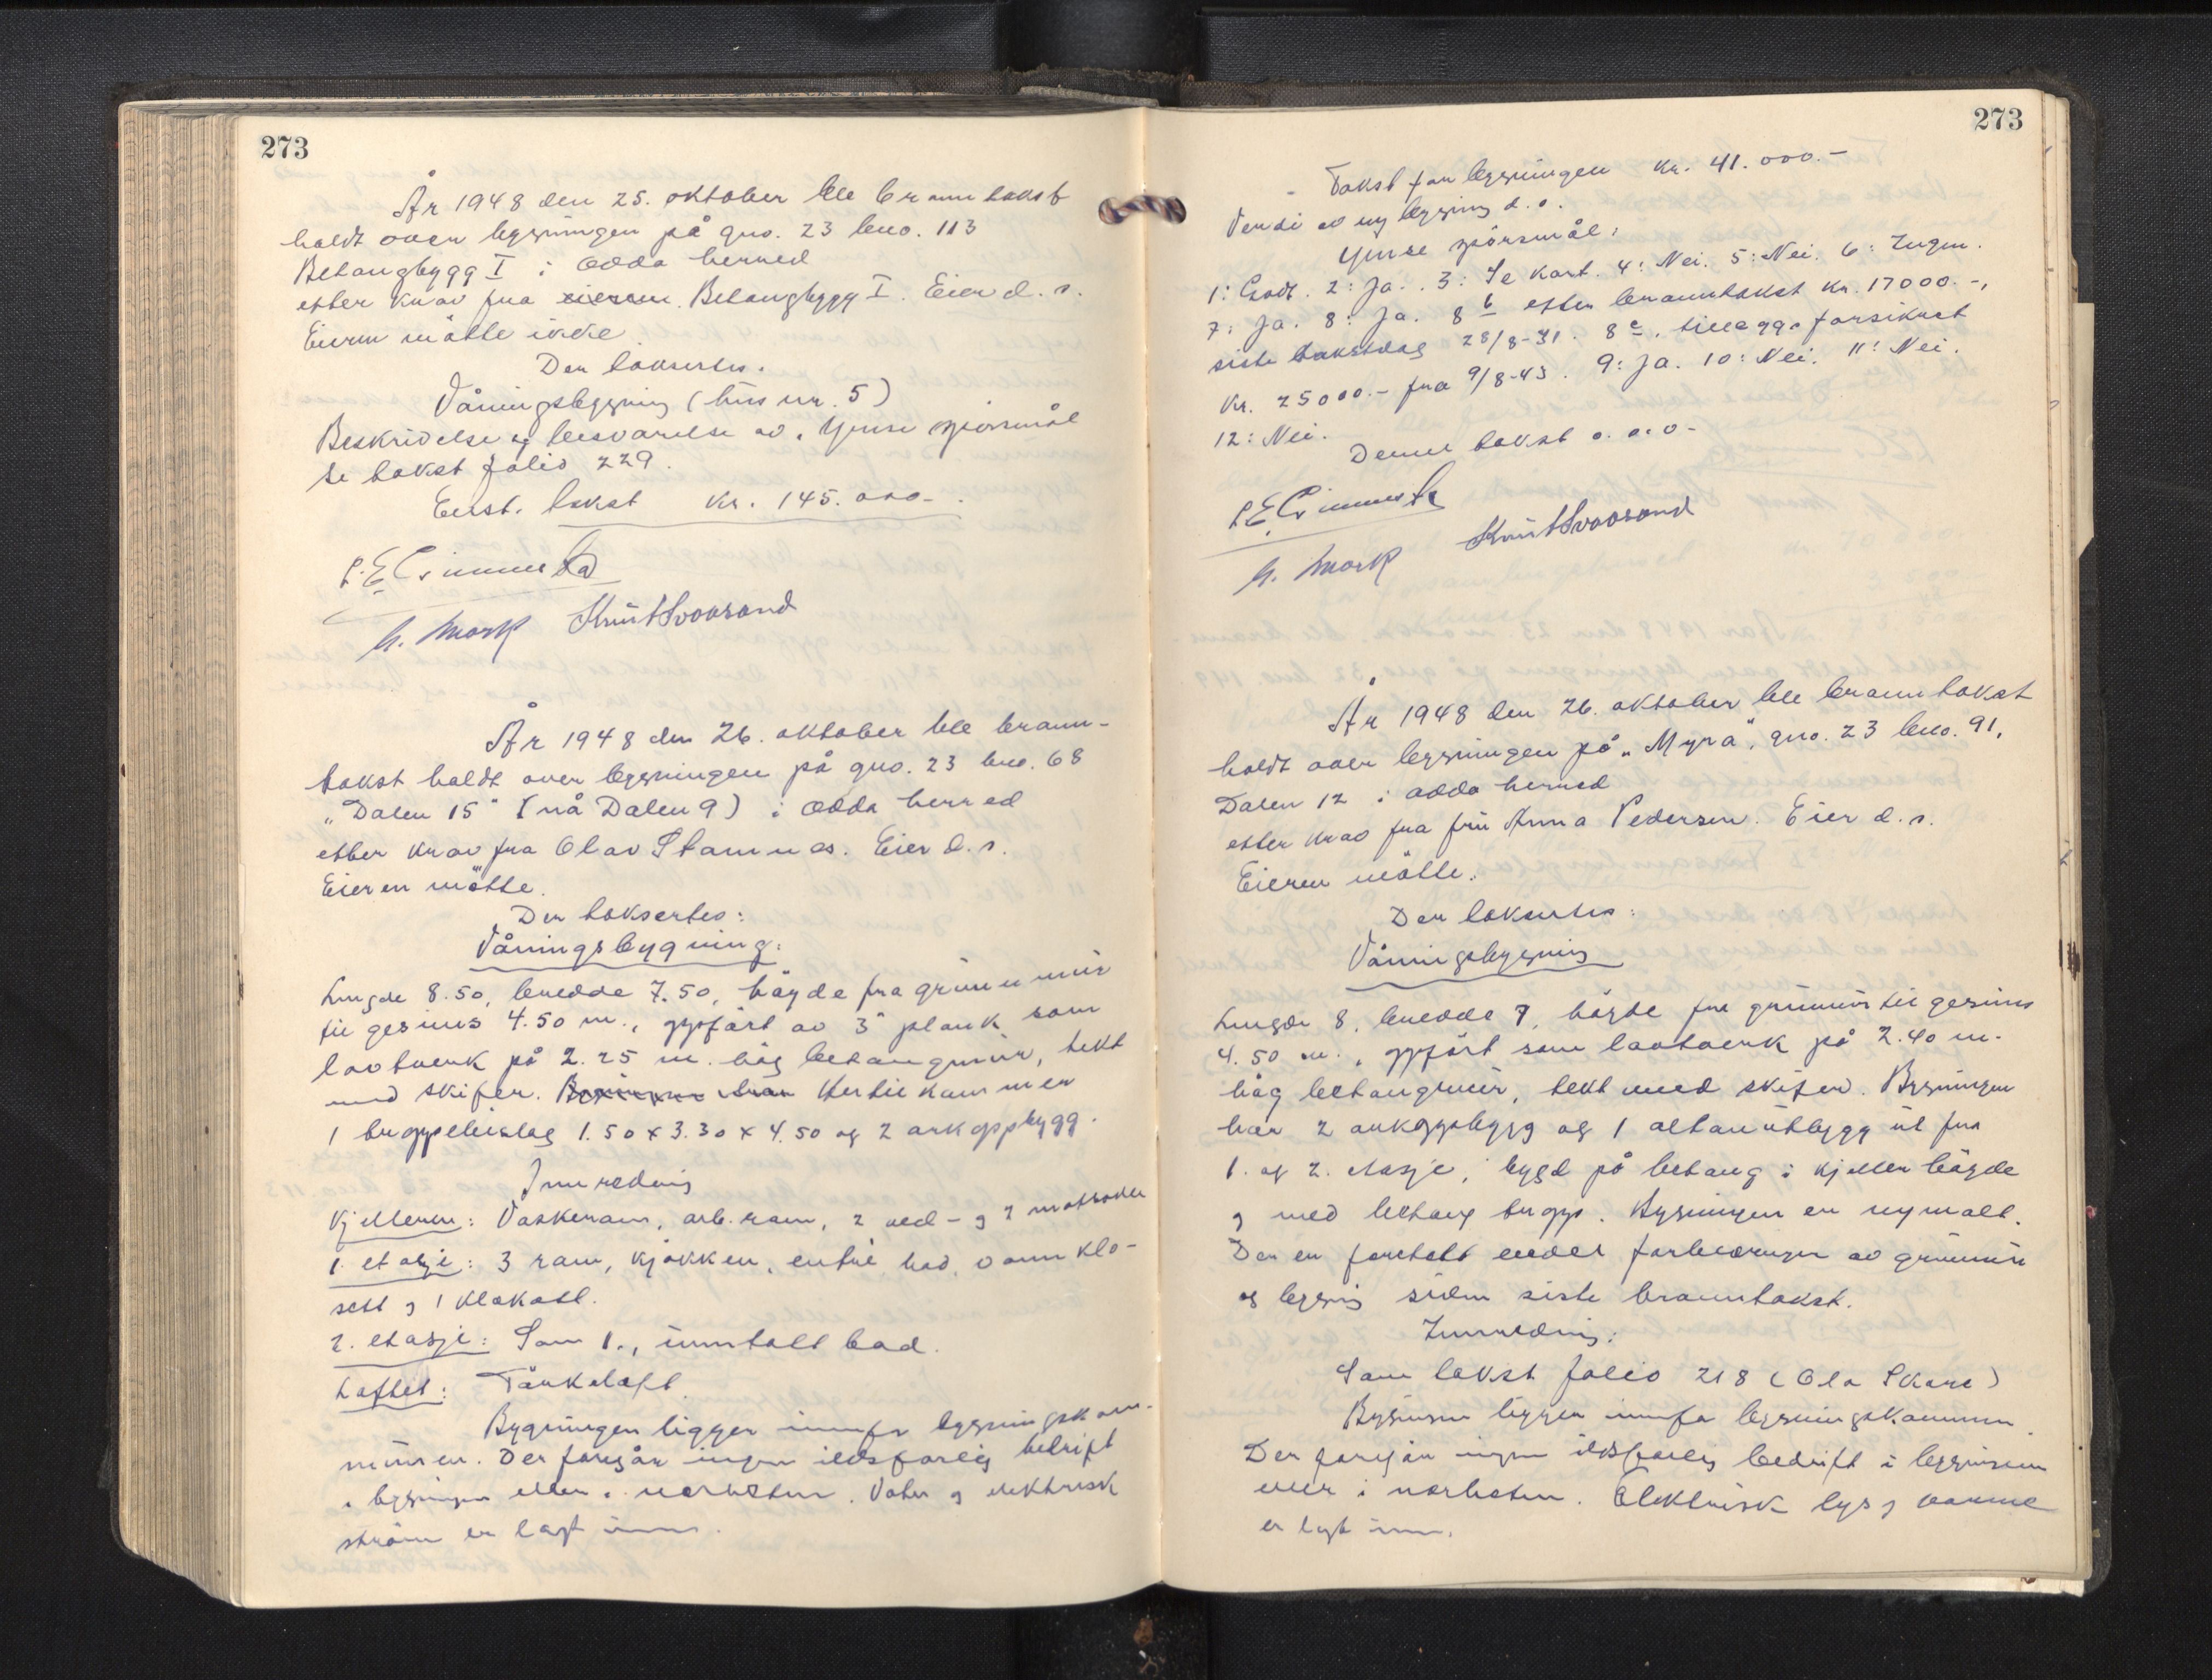 273
År 1948 den 25. oktober ble branntakst
holdt over bygningen på gno. 23 bno. 113
Betongbygg I i Odda herred
etter krav fra eieren Betongbygg I. Eier d. s.
Eieren møtte ikke
Der taksertes.
Våningsbygning (hus nr. 5)
Beskrivelse og besvarelse av „Ymse spörsmål
se takst folio 229.
Enst. takst kr. 145.000.-
G. Mork Knut Svoosand
År 1948 den 26. oktober ble brann-
takst holdt over bygningen på gno. 23 bno. 68
„Dalen 15" (nå Dalen 9) i Odda herred
etter krav fra Olav Stamnes. Eier d. s.
Eieren møtte.
Der taksertes:
Våningsbygning:
Lengde 8.50, bredde 7.50, höyde fra grunnmur
til gesims 4.50 m., oppfört av 3" plank som
lavtverk på 2.25 m. hög betongmur, tekt
med skifer. Hertil kommer
1 trappebislag 1.50 x 3.30 x 4.50 og 2 arkoppbygg.
Innredning
Kjelleren: Vaskerom, arb. rom, 2 ved- og 2 matboder
1. etasje: 3 rom, kjökken, entré bad, vannklo-
sett og 1 klekott.
2. etasje: Som 1., unntatt bad.
Loftet: Törkeloft.
Bygningen ligger innafor bygningskom-
munen. Der foregår ingen ildsfarlig bedrift
i bygningen eller i nærheten. Vatn og elektrisk
ström er lagt inn.
273
- Takst for bygningen kr. 41.000.-
Verdi av ny bygning d. s.
Ymse spörsmål:
1: Godt. 2: Ja. 3: Se kart. 4: Nei. 5: Nei. 6: Ingen.
7: Ja. 8: Ja. 8b etter branntakst kr. 17000.-,
siste takstdag 28/8-31. 8c, tilleggsforsikret
kr. 25000.- fra 9/8-43. 9: Ja. 10: Nei. 11: Nei.
12: Nei.
Denne takst o.s.v.-
G. Mork Knut Svoosand
År 1948 den 26. oktober ble branntakst
holdt over bygningen på „Myra", gno. 23 bno. 91,
Dalen 12 i Odda herred
etter krav fra fru Anna Pedersen. Eier d. s.
Eieren møtte.
Der taksertes:
Våningsbygning
Lengde 8, bredde 7, höyde fra grunnmur til gesims
4.50 m., oppfört som lavtverk på 2.40 m.
hög betongmur, tekt med skifer. Bygningen
har 2 arkoppbygg og 1 altanutbygg ut fra
1. og 2. etasje, bygd på betong i kjellerhöyde
og med betong trapp. Bygningen er nymalt.
Der er foretatt endel forbedringer av grunnmur
og bygning siden siste branntakst.
Innredning:
Som takst folio 218 (Ola Skare)
Bygningen ligger innafor bygningskommunen.
Der foregår ingen ildsfarlig bedrift i bygningen
eller i nærheten. Elektrisk lys og varme
er lagt inn.